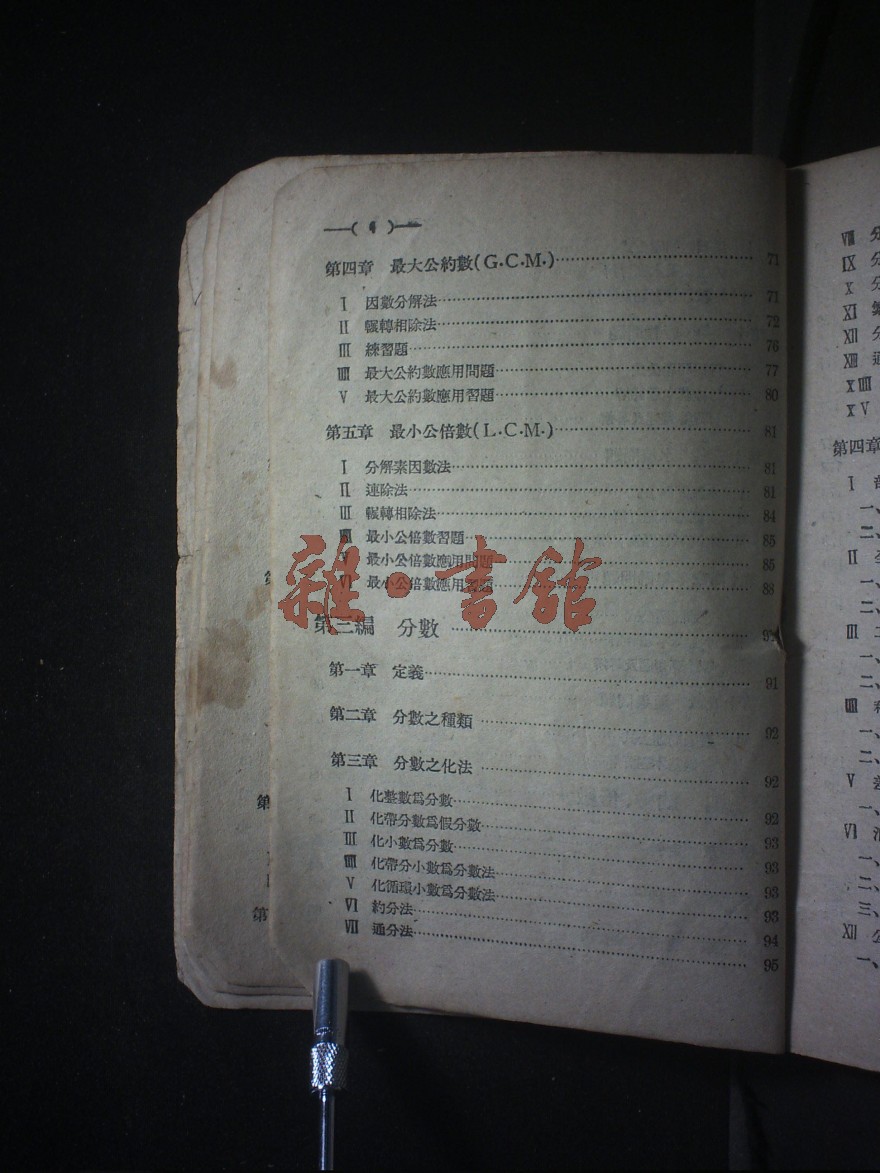 —( 4 )—
第四章 最大公約數(G.C.M.)…71
I 因數分解法…71
II 輾轉相除法…72
III 練習題…76
IIII 最大公約數應用問題…77
V 最大公約數應用習題…80
第五章 最小公倍數(L.C.M.)…81
I 分解素因數法…81
II 連除法…81
III 輾轉相除法…84
IIII 最小公倍數習題…85
V 最小公倍數應用問題…85
VI 最小公倍數應用習題…88
雜·書館
第三編 分數…91
第一章 定義…91
第二章 分數之種類…92
第三章 分數之化法…92
I 化整數爲分數…92
II 化帶分數爲假分數…93
III 化小數爲分數…93
IIII 化帶分小數爲分數法…93
V 化循環小數爲分數法…93
VI 約分法…94
VII 通分法…95
第
第
VIII 分
IX 分
X 分
XI 繁
XII 分
XIII 通
XIIII
XV
第四章
I
一、
二、
II
一、
二、
III
一、
二、
IIII
一、
二、
V
一、
VI
一、
二、
三、
XII 公
一、